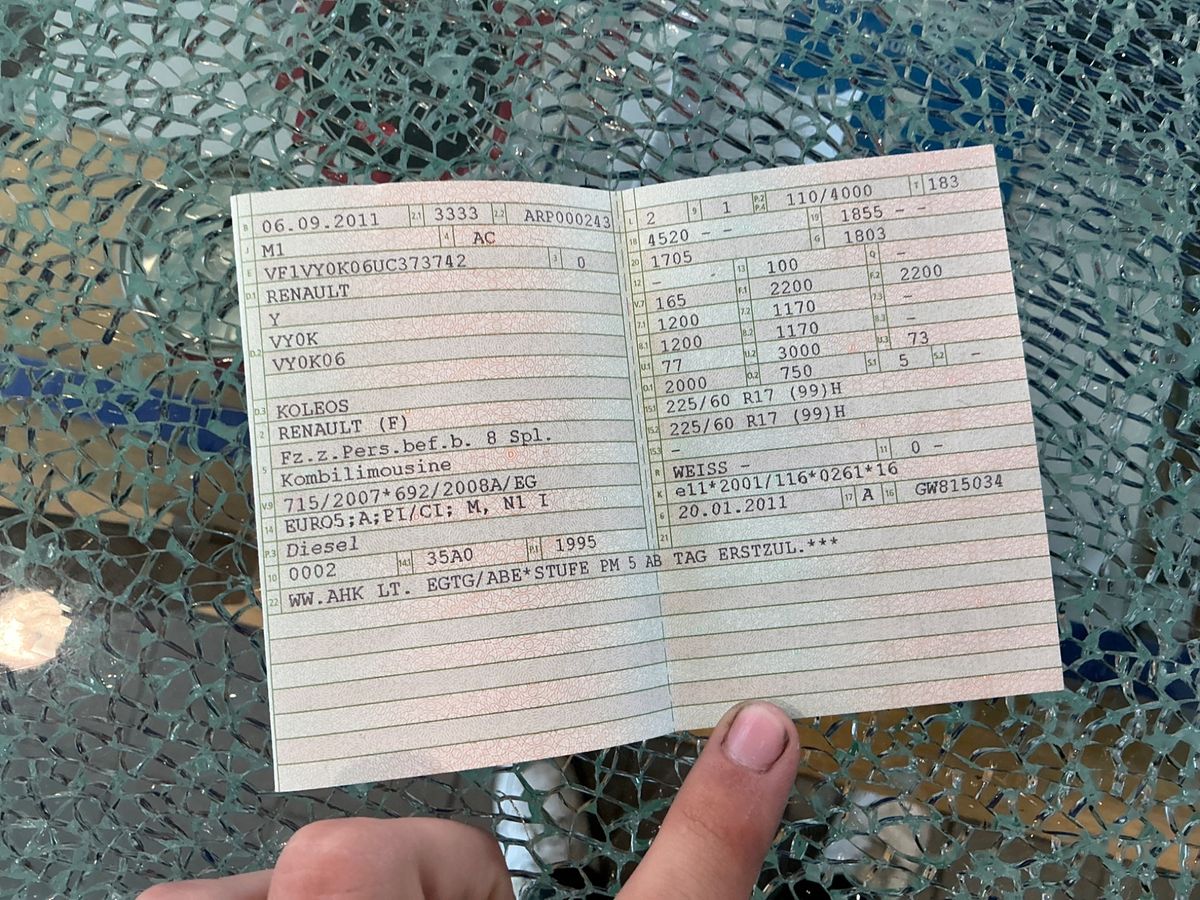 B 06.09.2011 2.1 3333 2.2 ARP000243
J M1 4 AC
E VF1VY0K06UC373742 3 0
D.1 RENAULT
Y
D.2 VY0K
VY0K06
D.3 KOLEOS
2 RENAULT (F)
5 Fz.z.Pers.bef.b. 8 Spl.
Kombilimousine
V.9 715/2007*692/2008A/EG
14 EURO5;A;PI/CI; M, N1 I
P.3 Diesel
10 0002 14.1 35A0 P.1 1995
22 WW.AHK LT. EGTG/ABE*STUFE PM 5 AB TAG ERSTZUL.***
L 2 9 1 P.2 P.4 110/4000 T 183
18 4520 - - 19 1855 - -
20 1705 G 1803
12 - - 13 100 Q -
V.7 165 F.1 2200 F.2 2200
7.1 1200 7.2 1170 7.3 -
8.1 1200 8.2 1170 8.3 -
U.1 77 U.2 3000 U.3 73
O.1 2000 O.2 750 S.1 5 S.2 -
15.1 225/60 R17 (99)H
15.2 225/60 R17 (99)H
15.3 -
R WEISS - 11 0 -
K e11*2001/116*0261*16
6 20.01.2011 17 A 16 GW815034
21